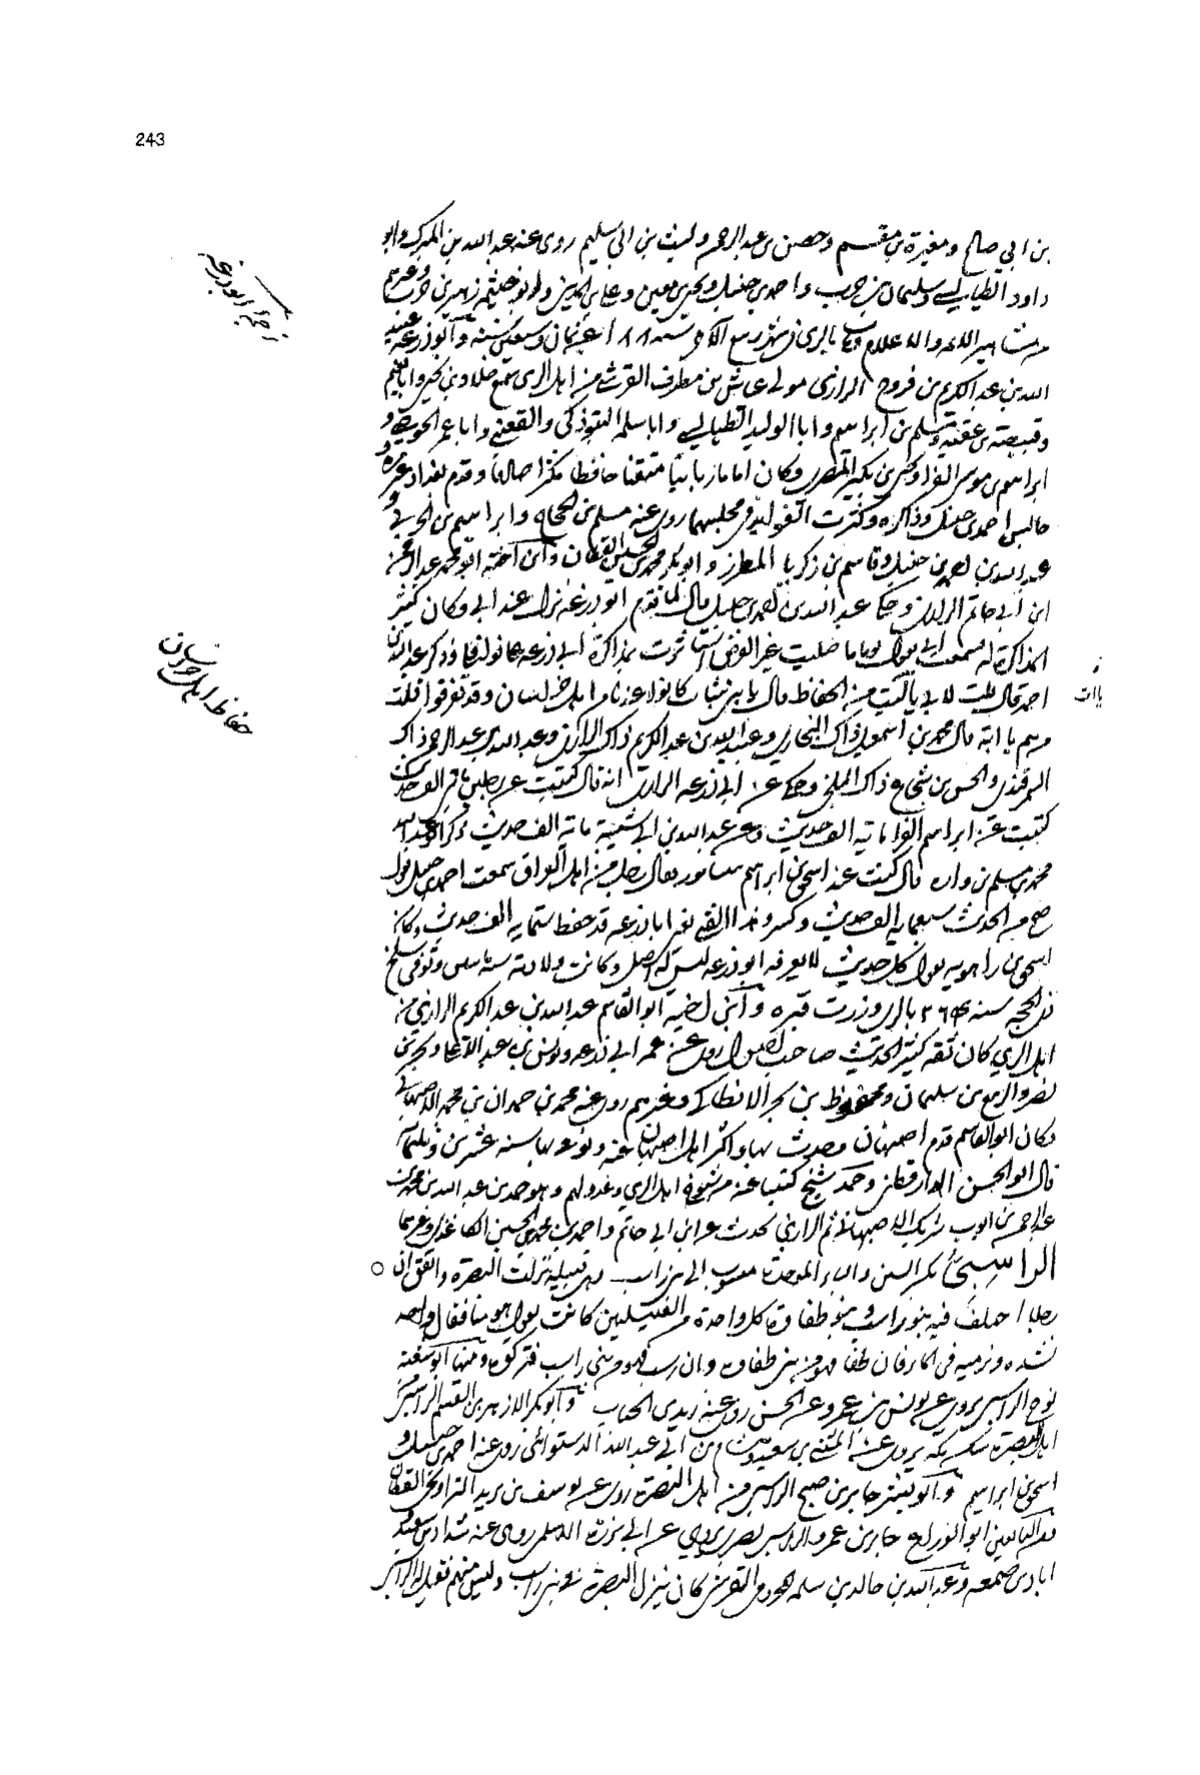 243
بن ابي صالح ومغيرة بن مقسم وحصين بن عبد الرحمن وليث بن ابي سليم روى عنه عبد الله بن المبارك وابو
داود الطيالسي وسليمان بن حرب واحمد بن حنبل ويحيى بن معين وعلي بن المديني وابو خيثمة زهير بن حرب وغيرهم
من مشاهير الائمة والاعلام ومات بالري في شهر ربيع الآخر سنة ١٨٨ عن ثمان وسبعين سنة وابو زرعة عبيد
الله بن عبد الكريم بن فروخ الرازى مولى عياش بن مطرف القرشي من اهل الري سمع خلاد بن يحيى وابا نعيم
وقبيصة بن عقبة ومسلم بن ابراهيم وابا الوليد الطيالسي وابا سلمة التبوذكي والقعنبي وابا عمر الحوضي و
ابراهيم بن موسى الفرا ويحيى بن بكير المصرى وكان اماما ربانيا متقنا حافظا مكثرا صادقا وقدم بغداد غير مرة و
جالس احمد بن حنبل وذاكره وكثرت الفوائد في مجلسهما روى عنه مسلم بن الحجاج وابراهيم بن الحربي و
عبد الله بن احمد بن حنبل وقاسم بن زكريا المطرز وابو بكر محمد بن الحسين القطان وابن اخته ابو محمد عبد الرحمن
ابن ابي حاتم الرازي وحكى عبد الله بن احمد بن حنبل قال لما قدم ابو زرعة نزل عند ابي وكان كثير
المذاكرة له فسمعت ابي يقول يوما ما صليت غير الفرض استاثرت بمذاكرة ابي زرعة على نوافلي وذكر عبد الله بن
احمد قال قلت لابي يا ابت من الحفاظ قال يا بني شباب كانوا عندنا من اهل خراسان وقد تفرقوا قلت
من هم يا ابة قال محمد بن اسمعيل ذاك البخاري وعبيد الله بن عبد الكريم ذاك الرازي وعبد الله بن عبد الرحمن ذاك
السمرقندي والحسن بن شجاع ذاك البلخي وحكى عن ابي زرعة الرازي انه قال كتبت عن رجلين مائتي الف حديث
كتبت عن ابراهيم الفرا ماية الف حديث وعن عبد الله بن ابي شيبة ماية الف حديث وذكر ابو عبد الله
محمد بن مسلم بن واره قال كنت عند اسحق بن ابراهيم بنيسابور فقال رجل من اهل العراق سمعت احمد بن حنبل يقول
صح من الحديث سبعماية الف حديث وكسر وهذا الفتى يعني ابا زرعة قد حفظ ستماية الف حديث وكان
اسحق بن راهويه يقول كل حديث لا يعرفه ابو زرعة ليس له اصل وكانت ولادته سنة مايتين وتوفي سلخ
ذي الحجة سنة ٢٦٤ بالري وزرت قبره وابن اخيه ابو القاسم عبد الله بن عبد الكريم الرازي من
اهل الري كان ثقة كثير الحديث صاحب اصول روى عن عمه ابي زرعة ويونس بن عبد الاعلى وبحر بن
نصر والربيع بن سليمان ومحفوظ بن بحر الانطاكي وغيرهم روى عنه محمد بن حمدان بن محمد الاصبهاني
وكان ابو القاسم قدم اصبهان وحدث بها واكثر اهل اصبهان عنه وتوفي بها سنة عشرين وثلثماية
قال ابو الحسن الدارقطني وحمد شيخ كتبنا عنه من شيوخ اهل الري وعدولهم وهو حمد بن عبد الله بن محمد بن
عبد الرحمن بن ايوب بن شريك الاصبهاني ثم الرازي يحدث عن ابن ابي حاتم واحمد بن محمد بن الحسين الكاغذي وغيرهما
الراسبي بكسر السين والباء الموحدة منسوب الى بني راسب وهي قبيلة نزلت البصرة واتفق ان
رجلا اختلف فيه بنو راسب وبنو طفاوة كل واحدة من القبيلتين كانت تقول هو منا فقال واحد
نشده ونرميه في الماء فان طفا فهو من بني طفاوة وان رسب فهو من بني راسب فتركوه ومنها ابو سعيد
نوح الراسبي يروي عن يونس بن عمرو عن الحسن روى عنه زيد بن الحباب وابو بكر الازهر بن القسم الراسبي
اهل البصرة سكن مكة يروي عن المثنى بن سعيد وهشام بن ابي عبد الله الدستوائي روى عنه احمد بن حنبل و
اسحق بن ابراهيم وابو بشر جابر بن صبح الراسبي من اهل البصرة روى عن يوسف بن يزيد البرا ويحيى القطان
ومن التابعين ابو الوازع جابر بن عمرو الراسبي بصري يروي عن ابي برزة الاسلمي روى عنه شداد بن سعيد
ابان بن صمعة وعبد الله بن خالد بن سلمة المخزومي القرشي كان ينزل البصرة في بني راسب وليس منهم فقيل له الراسبي
ترجمة ابو زرعة
حفاظ اهل خراسان